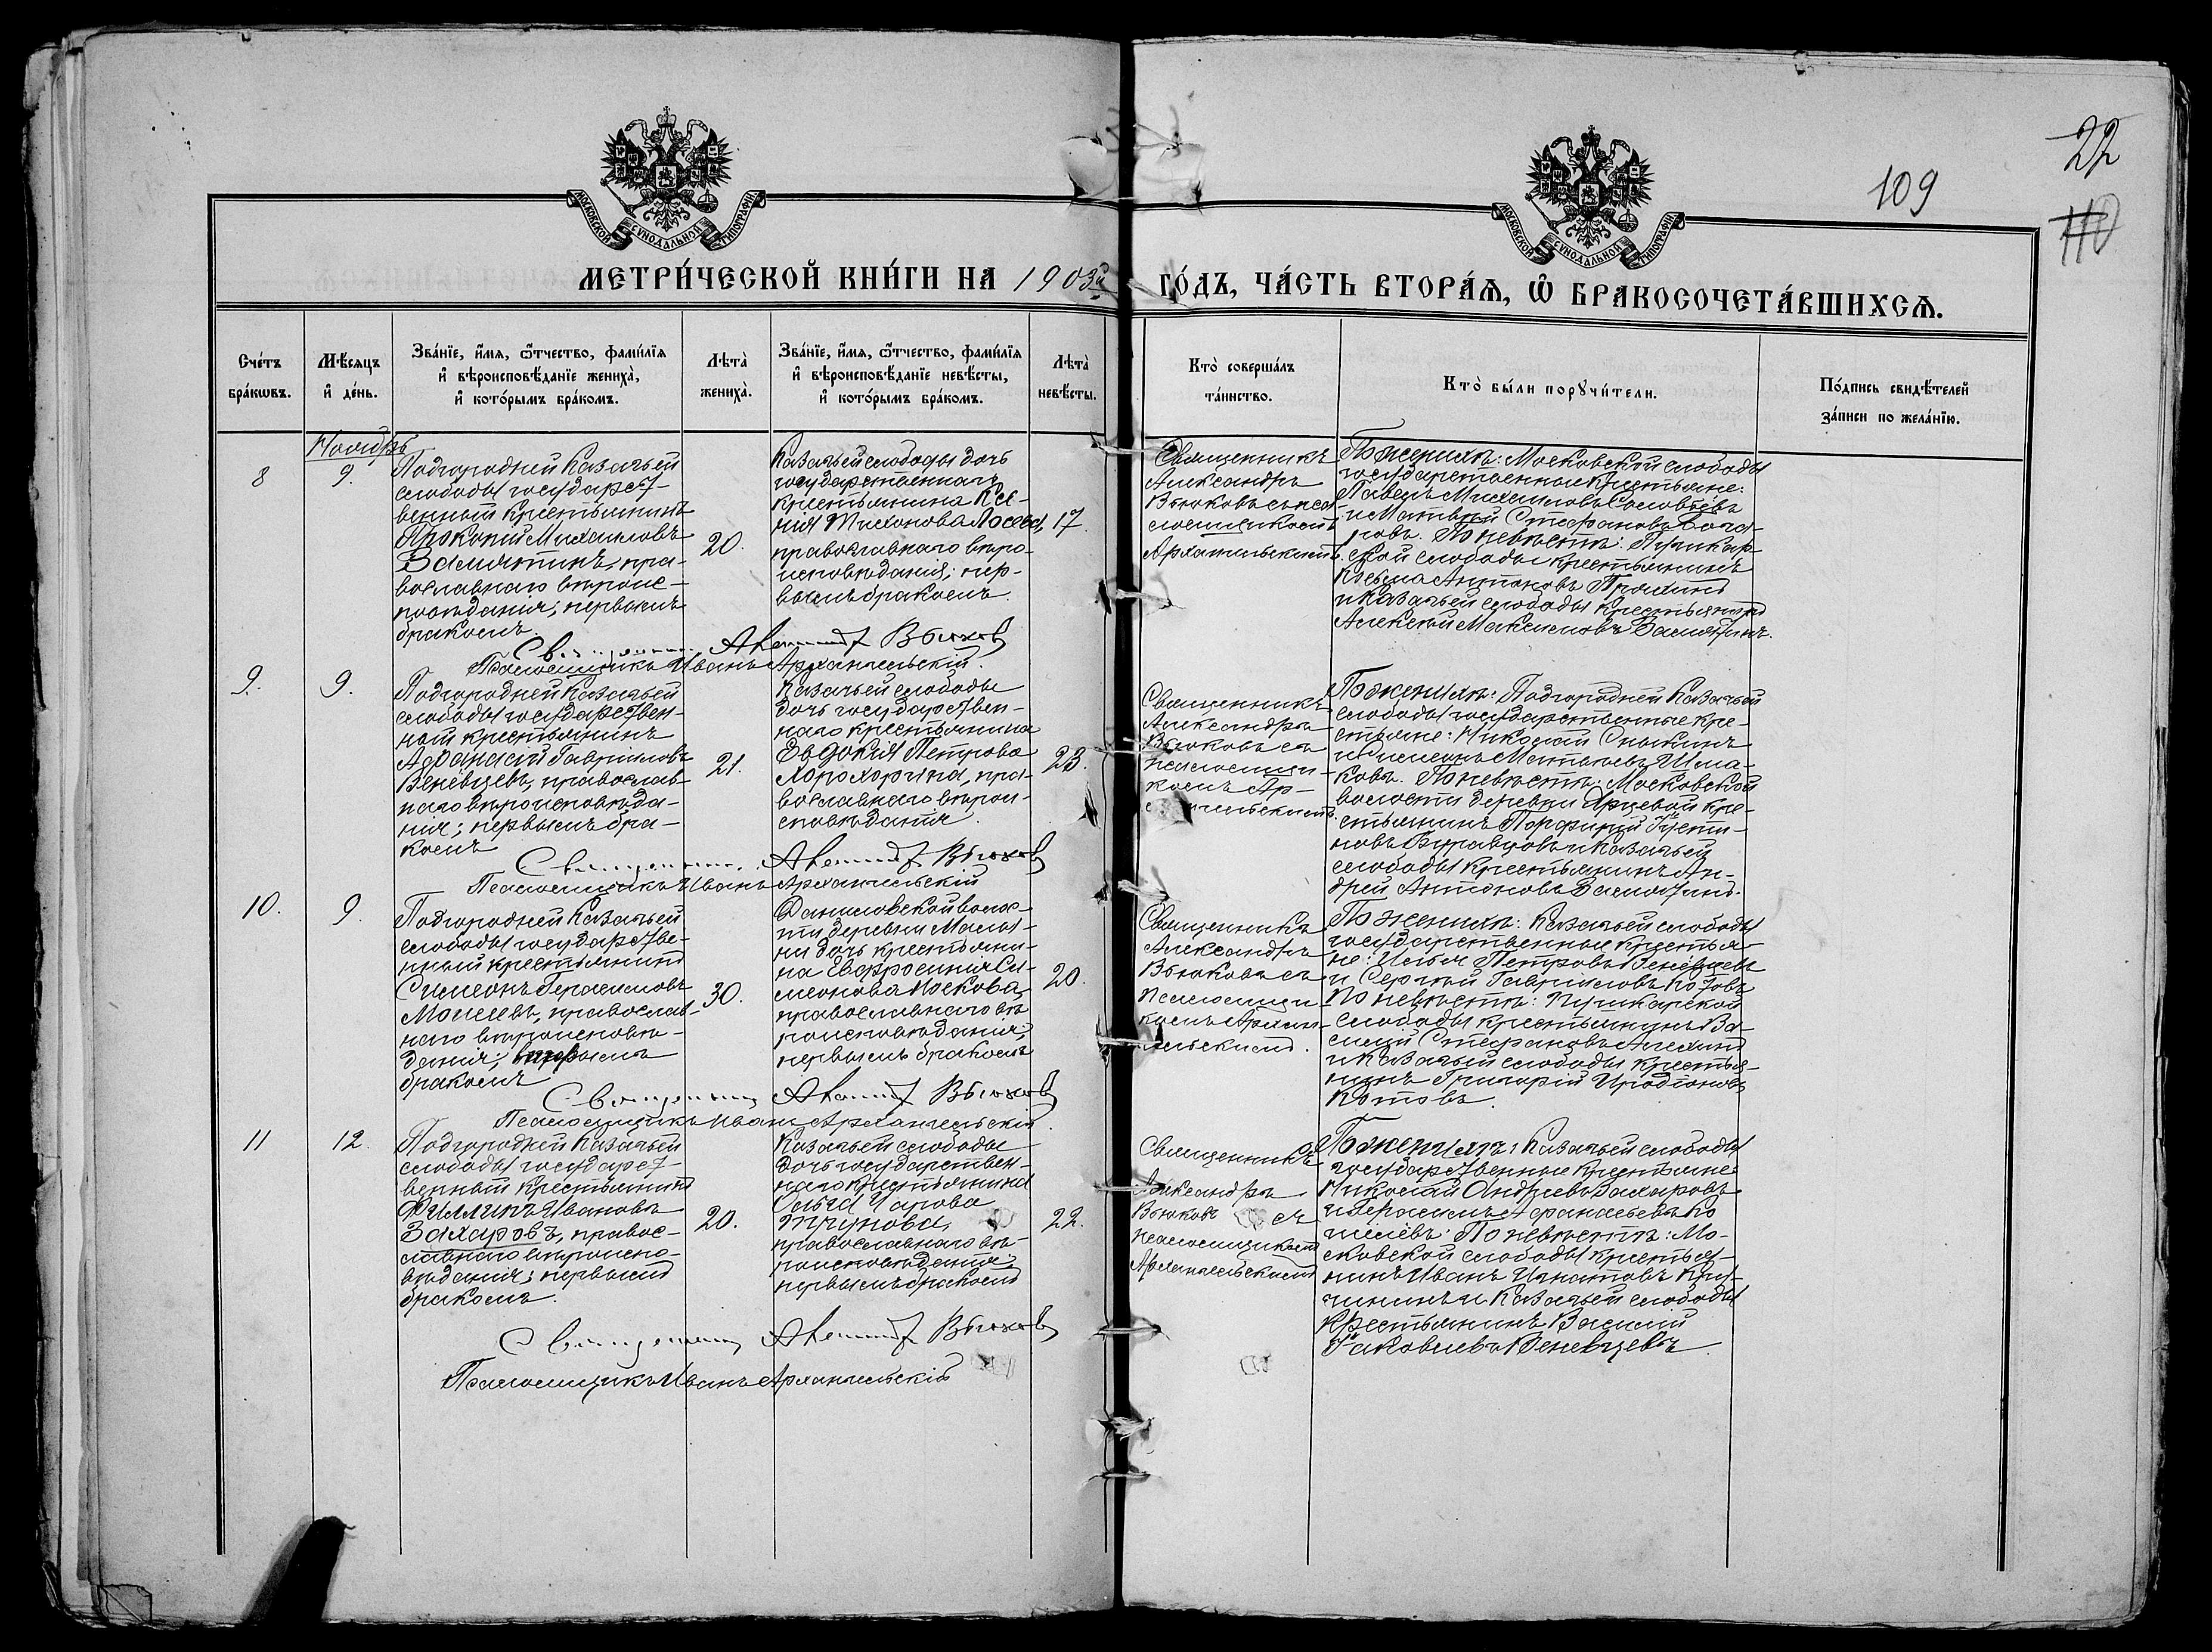 22
109
110
МОСКОВСКОЙ СѴНОДАЛЬНОЙ ТИПОГРАФІИ
МОСКОВСКОЙ СѴНОДАЛЬНОЙ ТИПОГРАФІИ
МЕТРИ́ЧЕСКОЙ КНИ́ГИ НА 1903й ГО́ДЪ, ЧА́СТЬ ВТОРА́Ѧ, Ѡ҆ БРАКОСОЧЕТА́ВШИХСѦ.
Сче́тъ
бра́кѡвъ.
Мѣ́сѧцъ
и҆ де́нь.
Зва́нїе, и҆́мѧ, ѻ҆́тчество, фами́лїѧ
и҆ вѣроисповѣ́данїе жениха̀,
и҆ кото́рымъ бра́комъ.
Лѣта̀
жениха̀.
Зва́нїе, и҆́мѧ, ѻ҆́тчество, фами́лїѧ
и҆ вѣроисповѣ́данїе невѣ́сты,
и҆ кото́рымъ бра́комъ.
Лѣта̀
невѣ́сты.
Кто̀ соверша́лъ
та́инство.
Кто̀ бы́ли порꙋчи́тели.
По́дпись свидѣ́телей
за́писи по жела́нїю.
Ноябрь
8
9.
Подгородней Казачьей
слободы государст-
венный крестьянинъ
Прокопій Михаиловъ
Замятинъ, пра-
вославнаго вѣроис-
повѣданія; первымъ
бракомъ.
20.
Казачьей слободы дочь
государственнаго
крестьянина Ксе-
нія Тихонова Лосева,
православнаго вѣро-
исповѣданія; пер-
вымъ бракомъ.
17.
Священникъ
Александръ
Вьюковъ съ пса-
ломщикомъ
Архангельскимъ.
По женихѣ: Московской слободы
государственные крестьяне:
Павелъ Михаиловъ Соловьевъ
и Матвѣй Стефановъ
По невѣстѣ: Пушкар-
ской слободы крестьянинъ
Косьма Антоновъ
и Казачьей слободы крестьянинъ
Алексѣй Максимовъ Замятинъ.
Священникъ Александръ Вьюковъ
Псаломщикъ Иванъ Архангельскій.
9.
9.
Подгородней Казачьей
слободы государствен-
ный крестьянинъ
Афанасій Гавриловъ
Веневцевъ, православ-
наго вѣроисповѣда-
нія; первымъ бра-
комъ
21.
Казачьей слободы
дочь государствен-
наго крестьянина
Евдокія Петрова
Хорохорина, пра-
вославнаго вѣрои-
сповѣданія.
23.
Священникъ
Александръ
Вьюковъ съ
псаломщи-
комъ Ар-
хангельскимъ
По женихѣ: Подгородней Казачьей
слободы государственные кре-
стьяне: Николай
и Симеонъ Матвѣевъ Шма-
ковъ. По невѣстѣ: Московской
волости деревни Ярцевой кре-
стьянинъ Порфирій Іусти-
новъ Буравцовъ и Казачьей
слободы крестьянинъ Ан-
дрей Антоновъ Замятинъ.
Священникъ Александръ Вьюковъ
Псаломщикъ Иванъ Архангельскій
10.
9.
Подгородней Казачьей
слободы государстве-
нный крестьянинъ
Симеонъ Герасимовъ
православ-
наго вѣроисповѣ-
данія; вторымъ
бракомъ
30.
Даниловской волос-
ти деревни Масло-
ни дочь крестьяни-
на Евфросинія Си-
меонова Носкова,
православнаго вѣ-
роисповѣданія;
первымъ бракомъ
20.
Священникъ
Александръ
Вьюковъ съ
Псаломщи-
комъ Архан-
гельскимъ.
По женихѣ: Казачьей слободы
государственные крестья-
не: Илья Петровъ Веневцевъ
и Сергѣй Гавриловъ Котовъ
По невѣстѣ: Пушкарской
слободы крестьянинъ Ва-
силій Стефановъ Алехинъ
и Казачьей слободы крестья-
нинъ Григорій Иродіоновъ
Котовъ.
Священникъ Александръ Вьюковъ
Псаломщикъ Иванъ Архангельскій.
11
12.
Подгородней Казачьей
слободы государст-
венный крестьянинъ
Филиппъ Ивановъ
Захаровъ, правос-
лавнаго вѣроиспо-
вѣданія; первымъ
бракомъ.
20.
Казачьей слободы
дочь государствен-
наго крестьянина
Трунова,
православнаго вѣ-
роисповѣданія;
первымъ бракомъ
22.
Священникъ
Александръ
Вьюковъ съ
псаломщикомъ
Архангельскимъ
По женихѣ: Казачьей слободы
государственные крестьяне:
Николай Андреевъ Захаровъ
и Герасимъ Афанасьевъ Ко-
шелевъ. По невѣстѣ: Мо-
сковской слободы крестья-
нинъ Иванъ Игнатовъ
и Казачьей слободы
крестьянинъ Василій
Іаковлевъ Веневцевъ.
Священникъ Александръ Вьюковъ
Псаломщикъ Иванъ Архангельскій